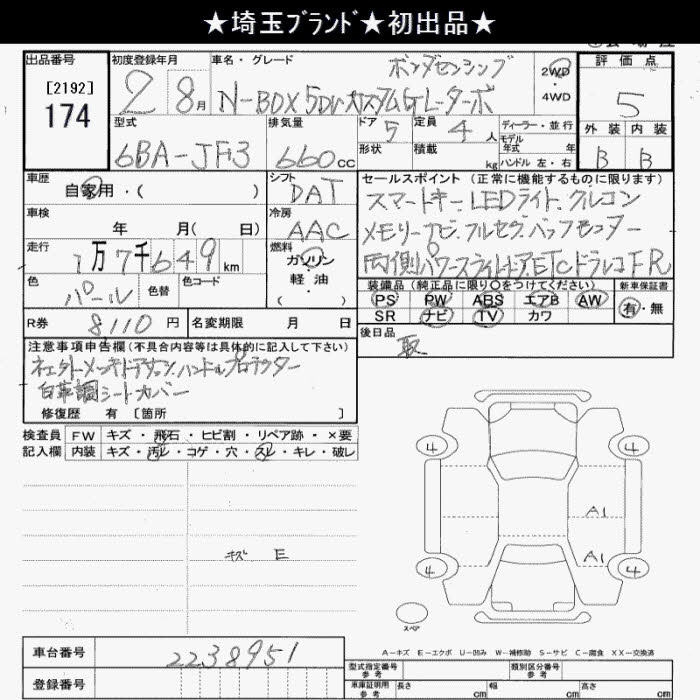 ★埼玉ブランド★初出品★
出品番号 初度登録年月 車名・グレード 評価点
[2192] 174
2 8月 ホンダセンシング 2WD・4WD
N-BOX 5Dr カスタムGL-ターボ
5
型式 排気量 ドア 5 定員 4人 ディーラー・並行 外装 内装
モデル年式 年
6BA-JF3 660cc 形状 積載 kg ハンドル 左・右 B B
車歴 自家用・( ) シフト DAT セールスポイント (正常に機能するものに限ります)
スマートキー.LEDライト.クルコン
車検 年 月( 日) 冷房 AAC
メモリーナビ.フルセグ.バックモニター
走行 1万7千649km 燃料 ガソリン・軽油 ( )
両側パワースライドドア.ETC.ドラレコFR
色 パール 色替 色コード
装備品(純正品に限り○をつけてください) 新車保証書
PS PW ABS エアB AW 有・無
SR ナビ TV カワ
R券 8110円 名変期限 月 日
後日品 取
注意事項申告欄(不具合内容等は具体的に記入して下さい)
白革調シートカバー
修復歴 有 [箇所 ]
検査員記入欄 FW キズ・飛石・ヒビ割・リペア跡・×要
内装 キズ・汚レ・コゲ・穴・スレ・キレ・破レ
キズ E
4 4
A1
A1
4 4
スペア
A-キズ E-エクボ U-凹み W-補修跡 S-サビ C-腐食 XX-交換済
車台番号 2238951
型式指定番号 参考 類別区分番号 参考
登録番号
車庫証明用 参考 長さ cm 幅 cm 高さ cm